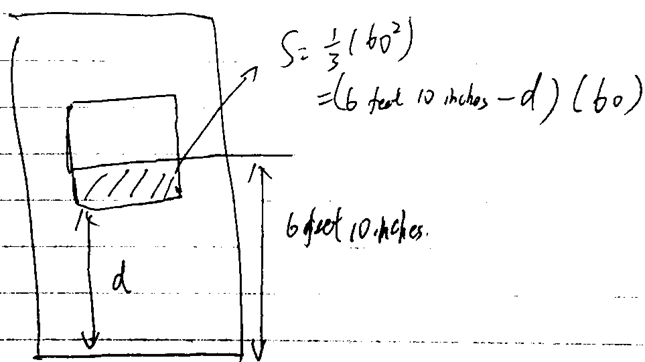 S = 1/3 (60²)
= (6 feet 10 inches - d) (60)
6 feet 10 inches.
d